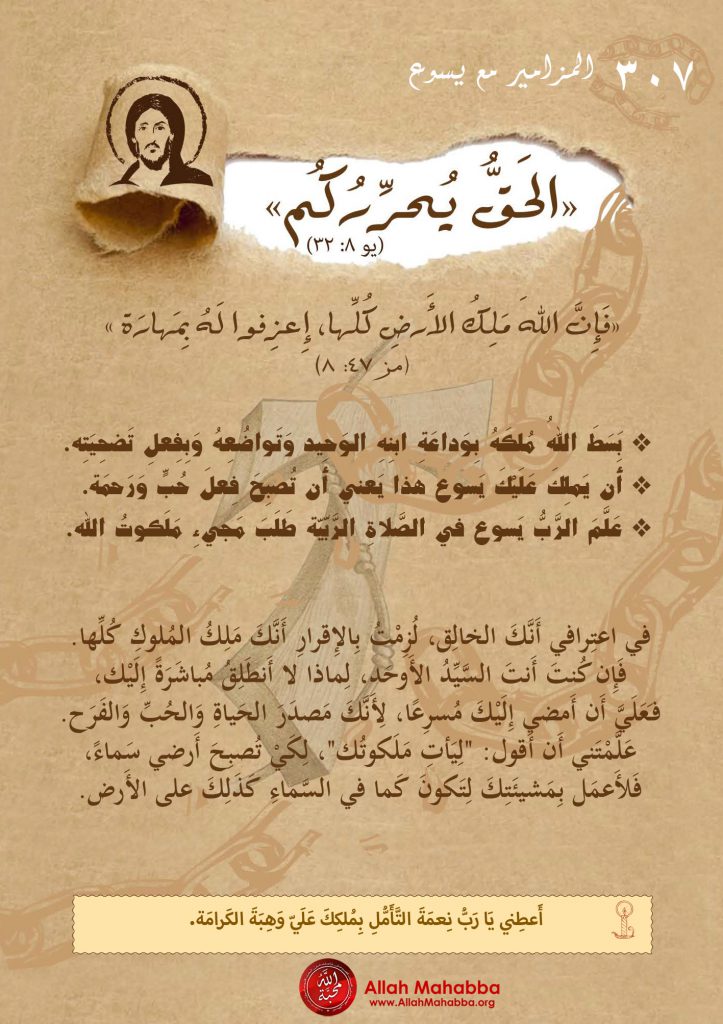 ٣٠٧ المزامير مع يسوع
«الحَقُّ يُحرِّرُكُم»
(يو ٨: ٣٢)
«فَإِنَّ اللهَ مَلِكُ الأَرضِ كُلِّها، إِعزِفوا لَهُ بِمَهارَة »
(مز ٤٧: ٨)
❖ بَسَطَ اللهُ مُلكَهُ بوَداعَة ابنه الوحيد وَتَواضُعهُ وَبِفعلِ تَضحيَتِه.
❖ أن يَملِكَ عَلَيْكَ يَسوَع هذا يَعني أن تُصبِحَ فعلَ حُبٍّ وَرَحمَة.
❖ عَلَّمَ الرَّبُّ يَسوع في الصَّلاة الرَّبِّيّة طَلَبَ مَجيءِ مَلَكوتُ الله.
في اعتِرافي أَنَّكَ الخالِق، لُزِمْتُ بِالإقرارِ أَنَّكَ مَلِكُ المُلوكِ كُلِّها.
فَإِن كُنتَ أَنتَ السَّيِّدُ الأَوحَد، لِماذا لا أَنطَلِقُ مُباشَرَةً إِلَيْك،
فَعَلَيَّ أَن أَمضي إِلَيْكَ مُسرِعًا، لِأَنَّكَ مَصدَرَ الحَياةِ وَالحُبِّ وَالفَرَح.
عَلَّمْتَني أَن أَقول: "لِيَأتِ مَلَكوتُك"، لِكَيْ تُصبِحَ أَرضي سَماءً،
فَلأَعمَل بِمَشيئَتِكَ لِتَكونَ كَما في السَّماءِ كَذَلِكَ على الأَرض.
أَعطِني يَا رَبُّ نِعمَةَ التَّأَمُّلِ بِمُلكِكَ عَلَيّ وَهِبَةَ الكَرامَة.
الله محبّة
Allah Mahabba
www.AllahMahabba.org